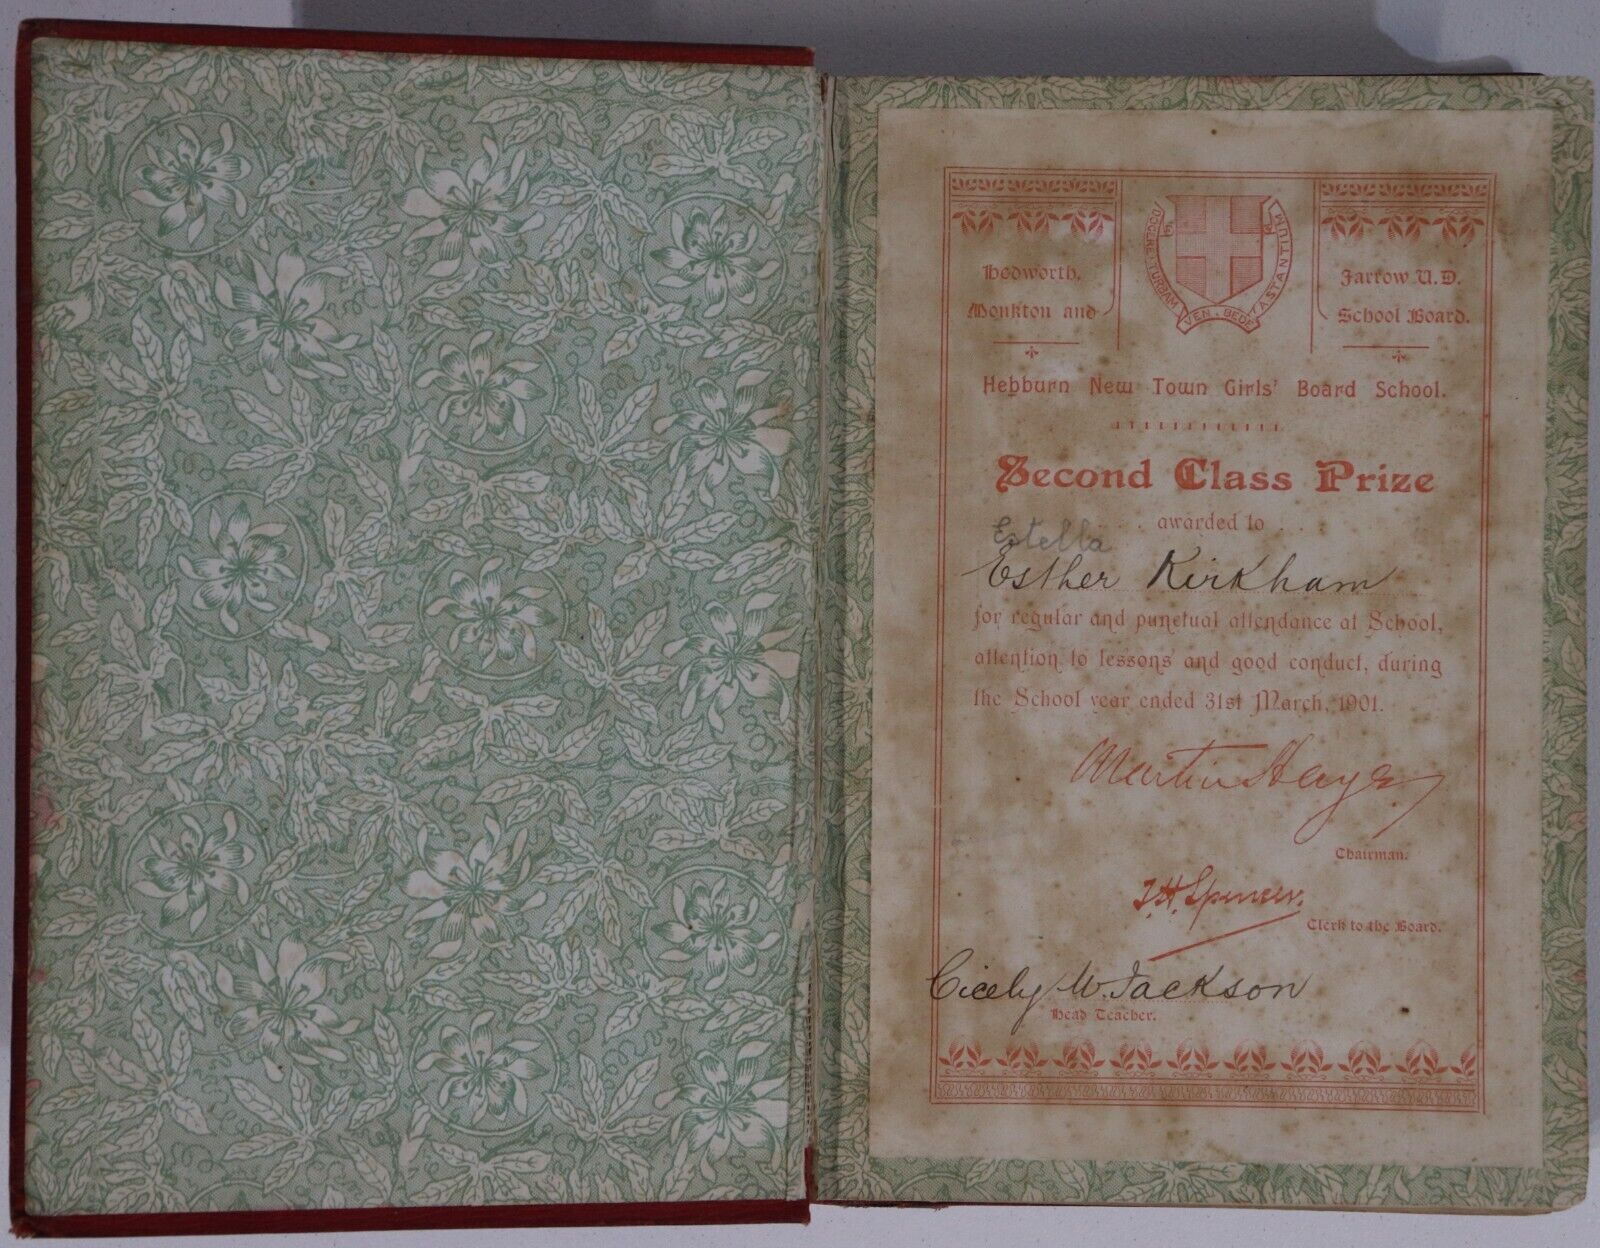 DOCERE · TURBAM VEN · BEDE ASTANTIUM
Hedworth,
Monkton and
Jarrow U.D.
School Board.
Hebburn New Town Girls' Board School.
Second Class Prize
. . . awarded to . . .
Estella
Esther Kirkham
for regular and punctual attendance at School,
attention to lessons and good conduct, during
the School year ended 31st March, 1901.
Martin Hayes
Chairman.
J.H. Spencer.
Clerk to the Board.
Cicely W. Jackson
Head Teacher.